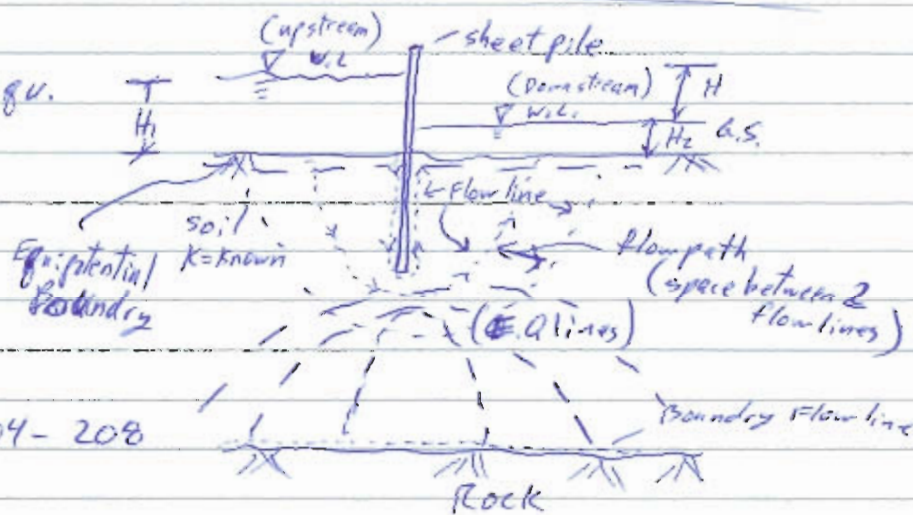 (upstream)
W.L
sheet pile
qu.
H1
(Downstream)
W.L.
H
H2
G.S.
Flow line
soil
K=Known
Equipotential
Boundry
flow path
(space between 2
flow lines)
(E.Q lines)
04-208
Boundry Flow line
Rock